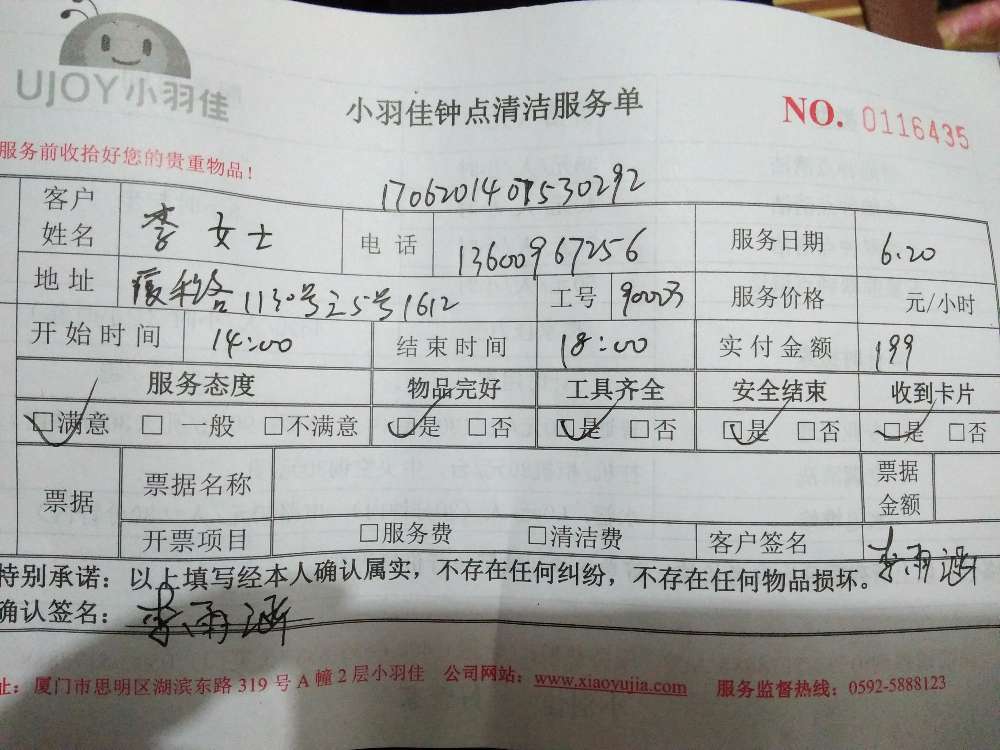 UJOY小羽佳
小羽佳钟点清洁服务单
NO. 0116435
服务前收拾好您的贵重物品!
1706201407530292
客户姓名 李女士 电话 13600967256 服务日期 6.20
地址 1130号之5号1612 工号 服务价格 元/小时
开始时间 14:00 结束时间 18:00 实付金额 199
服务态度 物品完好 工具齐全 安全结束 收到卡片
☑满意 □一般 □不满意 ☑是 □否 ☑是 □否 ☑是 □否 ☑是 □否
票据 票据名称 票据金额
开票项目 □服务费 □清洁费 客户签名 李雨涵
特别承诺：以上填写经本人确认属实，不存在任何纠纷，不存在任何物品损坏。
确认签名：李雨涵
址：厦门市思明区湖滨东路319号A幢2层小羽佳 公司网站：www.xiaoyujia.com 服务监督热线：0592-5888123